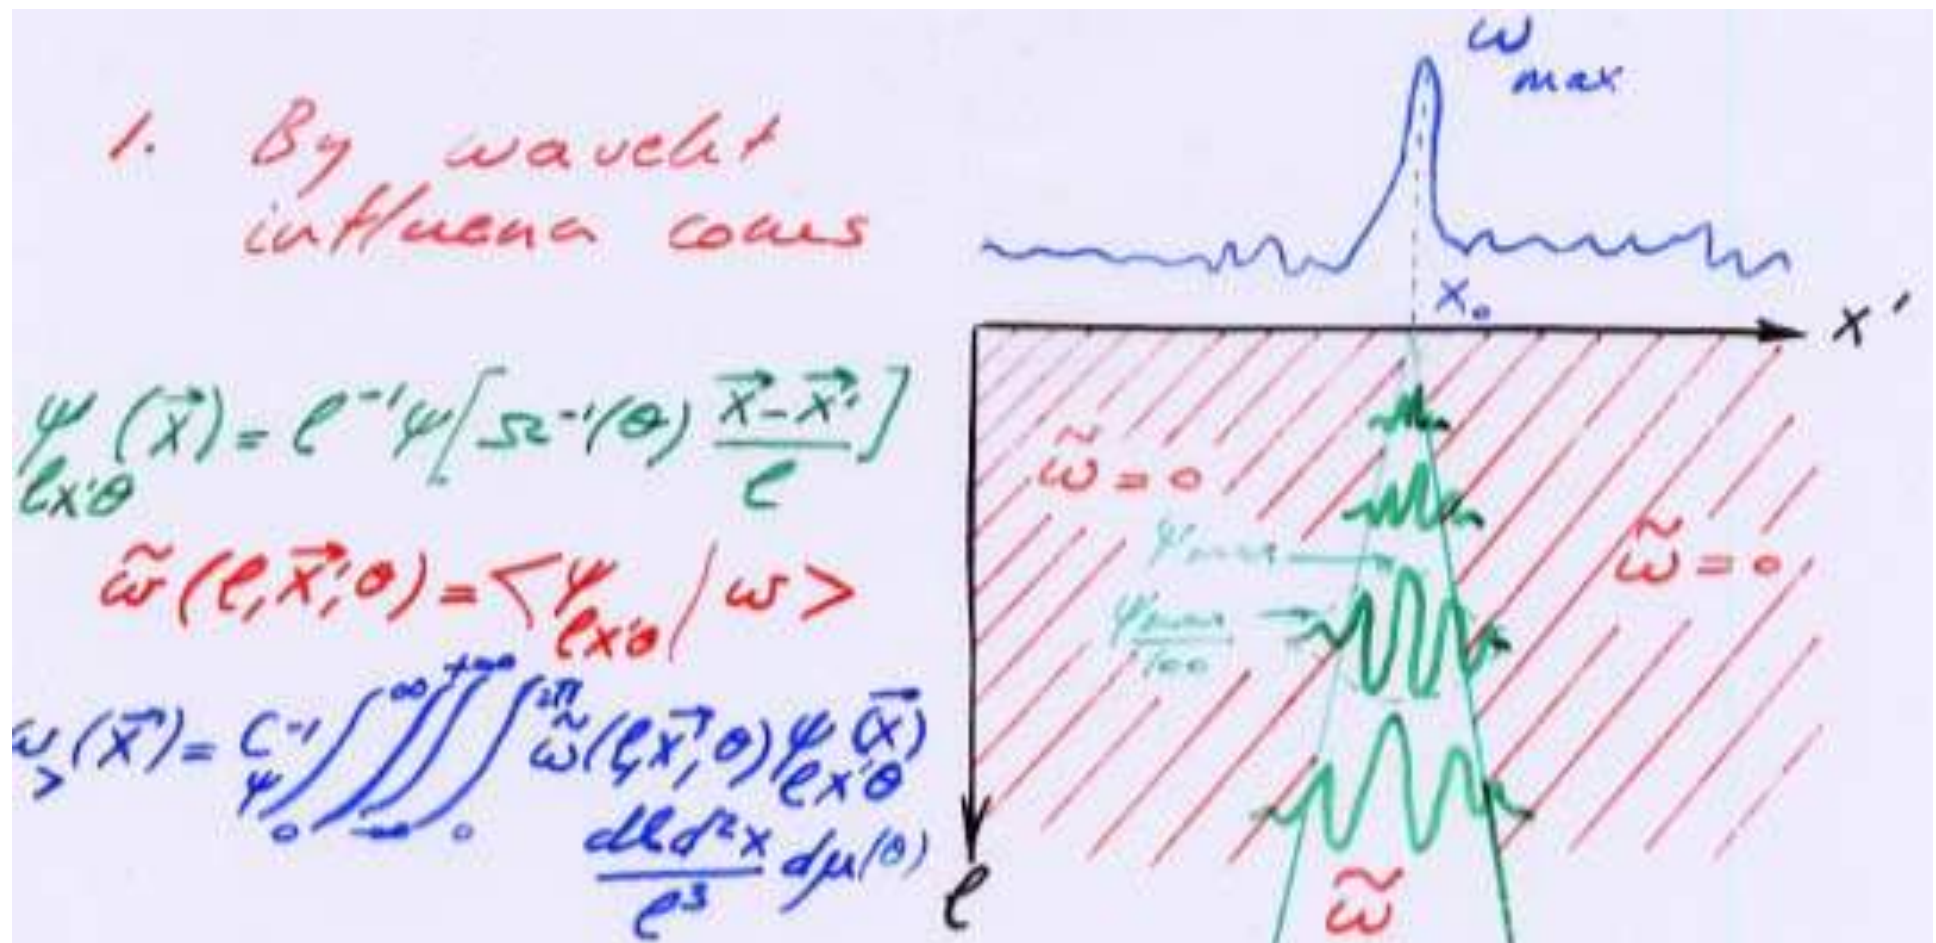 1. By wavelet
influence cones
ψ_{ℓx'θ}(x⃗) = ℓ⁻¹ ψ[Ω⁻¹(θ) (x⃗ - x⃗')/ℓ]
ω̃(ℓ, x⃗', θ) = <ψ_{ℓx'θ} | ω>
ω_>(x⃗) = C_ψ⁻¹ ∫₀^∞ ∫∫_{-∞}^{+∞} ∫₀^{2π} ω̃(ℓ, x⃗', θ) ψ_{ℓx'θ}(x⃗)
dℓd²x/ℓ³ dμ(θ)
ω_max
x₀
x'
ω̃ = 0
ω̃ = 0
ψ_max
ψ_max/100
ℓ
ω̃